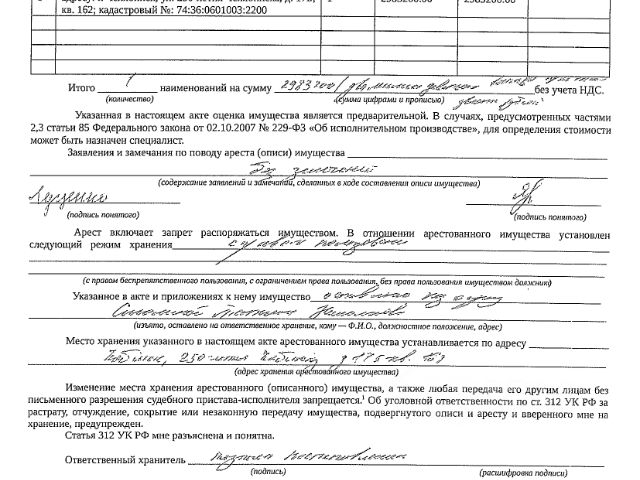 кв. 162; кадастровый №: 74:36:0601003:2200
Итого 1 наименований на сумму 2983200/ два миллиона девятьсот без учета НДС.
(количество) (сумма цифрами и прописью)
Указанная в настоящем акте оценка имущества является предварительной. В случаях, предусмотренных частями
2,3 статьи 85 Федерального закона от 02.10.2007 № 229-ФЗ «Об исполнительном производстве», для определения стоимости
может быть назначен специалист.
Заявления и замечания по поводу ареста (описи) имущества
Без замечаний
(содержание заявлений и замечаний, сделанных в ходе составления описи имущества)
(подпись понятого) (подпись понятого)
Арест включает запрет распоряжаться имуществом. В отношении арестованного имущества установлен
следующий режим хранения с правом пользования
(с правом беспрепятственного пользования, с ограничением права пользования, без права пользования имуществом должник)
Указанное в акте и приложениях к нему имущество
(изъято, оставлено на ответственное хранение, кому — Ф.И.О., должностное положение, адрес)
Место хранения указанного в настоящем акте арестованного имущества устанавливается по адресу
(адрес хранения арестованного имущества)
Изменение места хранения арестованного (описанного) имущества, а также любая передача его другим лицам без
письменного разрешения судебного пристава-исполнителя запрещается.¹ Об уголовной ответственности по ст. 312 УК РФ за
растрату, отчуждение, сокрытие или незаконную передачу имущества, подвергнутого описи и аресту и вверенного мне на
хранение, предупрежден.
Статья 312 УК РФ мне разъяснена и понятна.
Ответственный хранитель
(подпись) (расшифровка подписи)